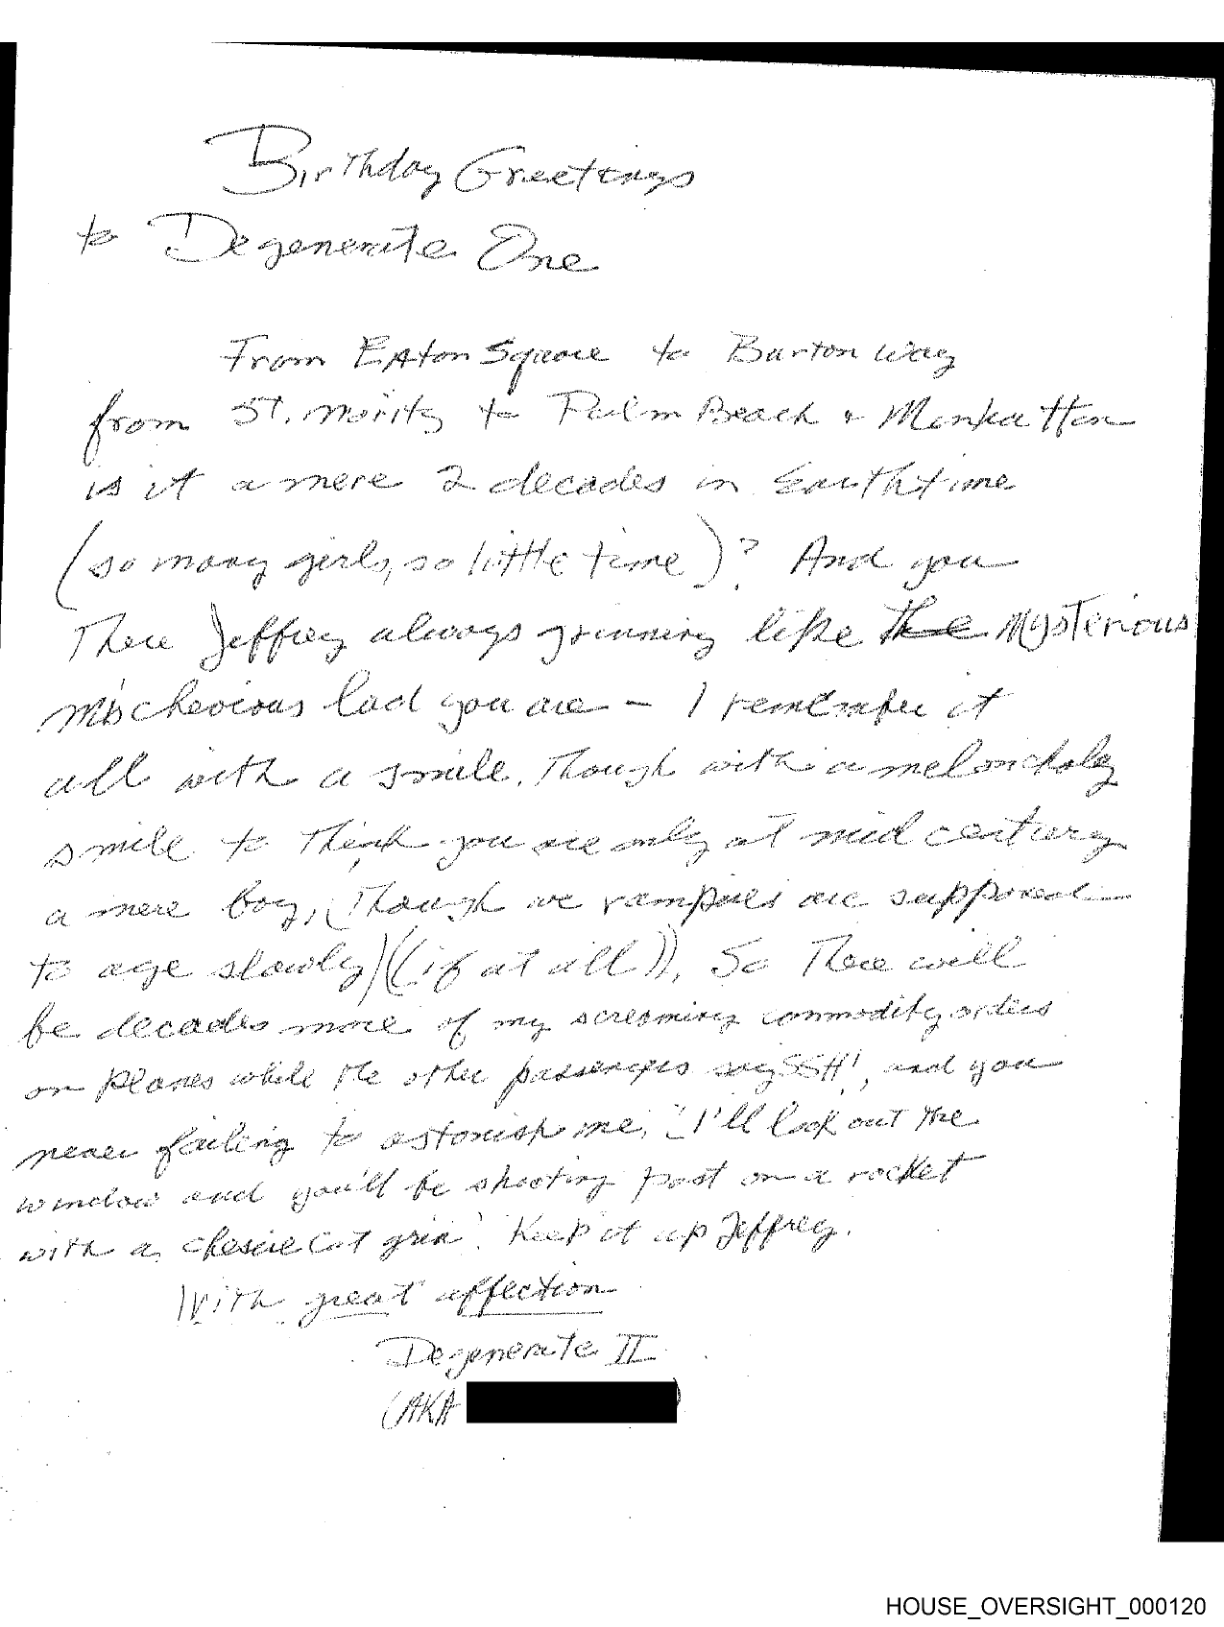 Birthday Greetings
to Degenerate One
From Eaton Square to Burton Way
from St. Moritz to Palm Beach & Manhattan
is it a mere 2 decades in Earthtime
(so many girls, so little time)? And you
There Jeffrey always grinning like the Mysterious
mischevious lad you are – I remember it
all with a smile. Though with a meloncholy
smile to think you are only at mid century
a mere boy, (Though we vampires are supposed
to age slowly) ((if at all)). So There will
be decades more of my screaming commodity orders
on planes while the other passengers say SSH!, and you
never failing to astonish me. I'll look out the
window and you'll be shooting past on a rocket
with a chesire cat grin! Keep it up Jeffrey.
With great affection
Degenerate II
(AKA )
HOUSE_OVERSIGHT_000120